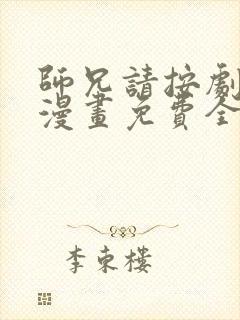 師兄請按劇
漫畫免費全
李東樓